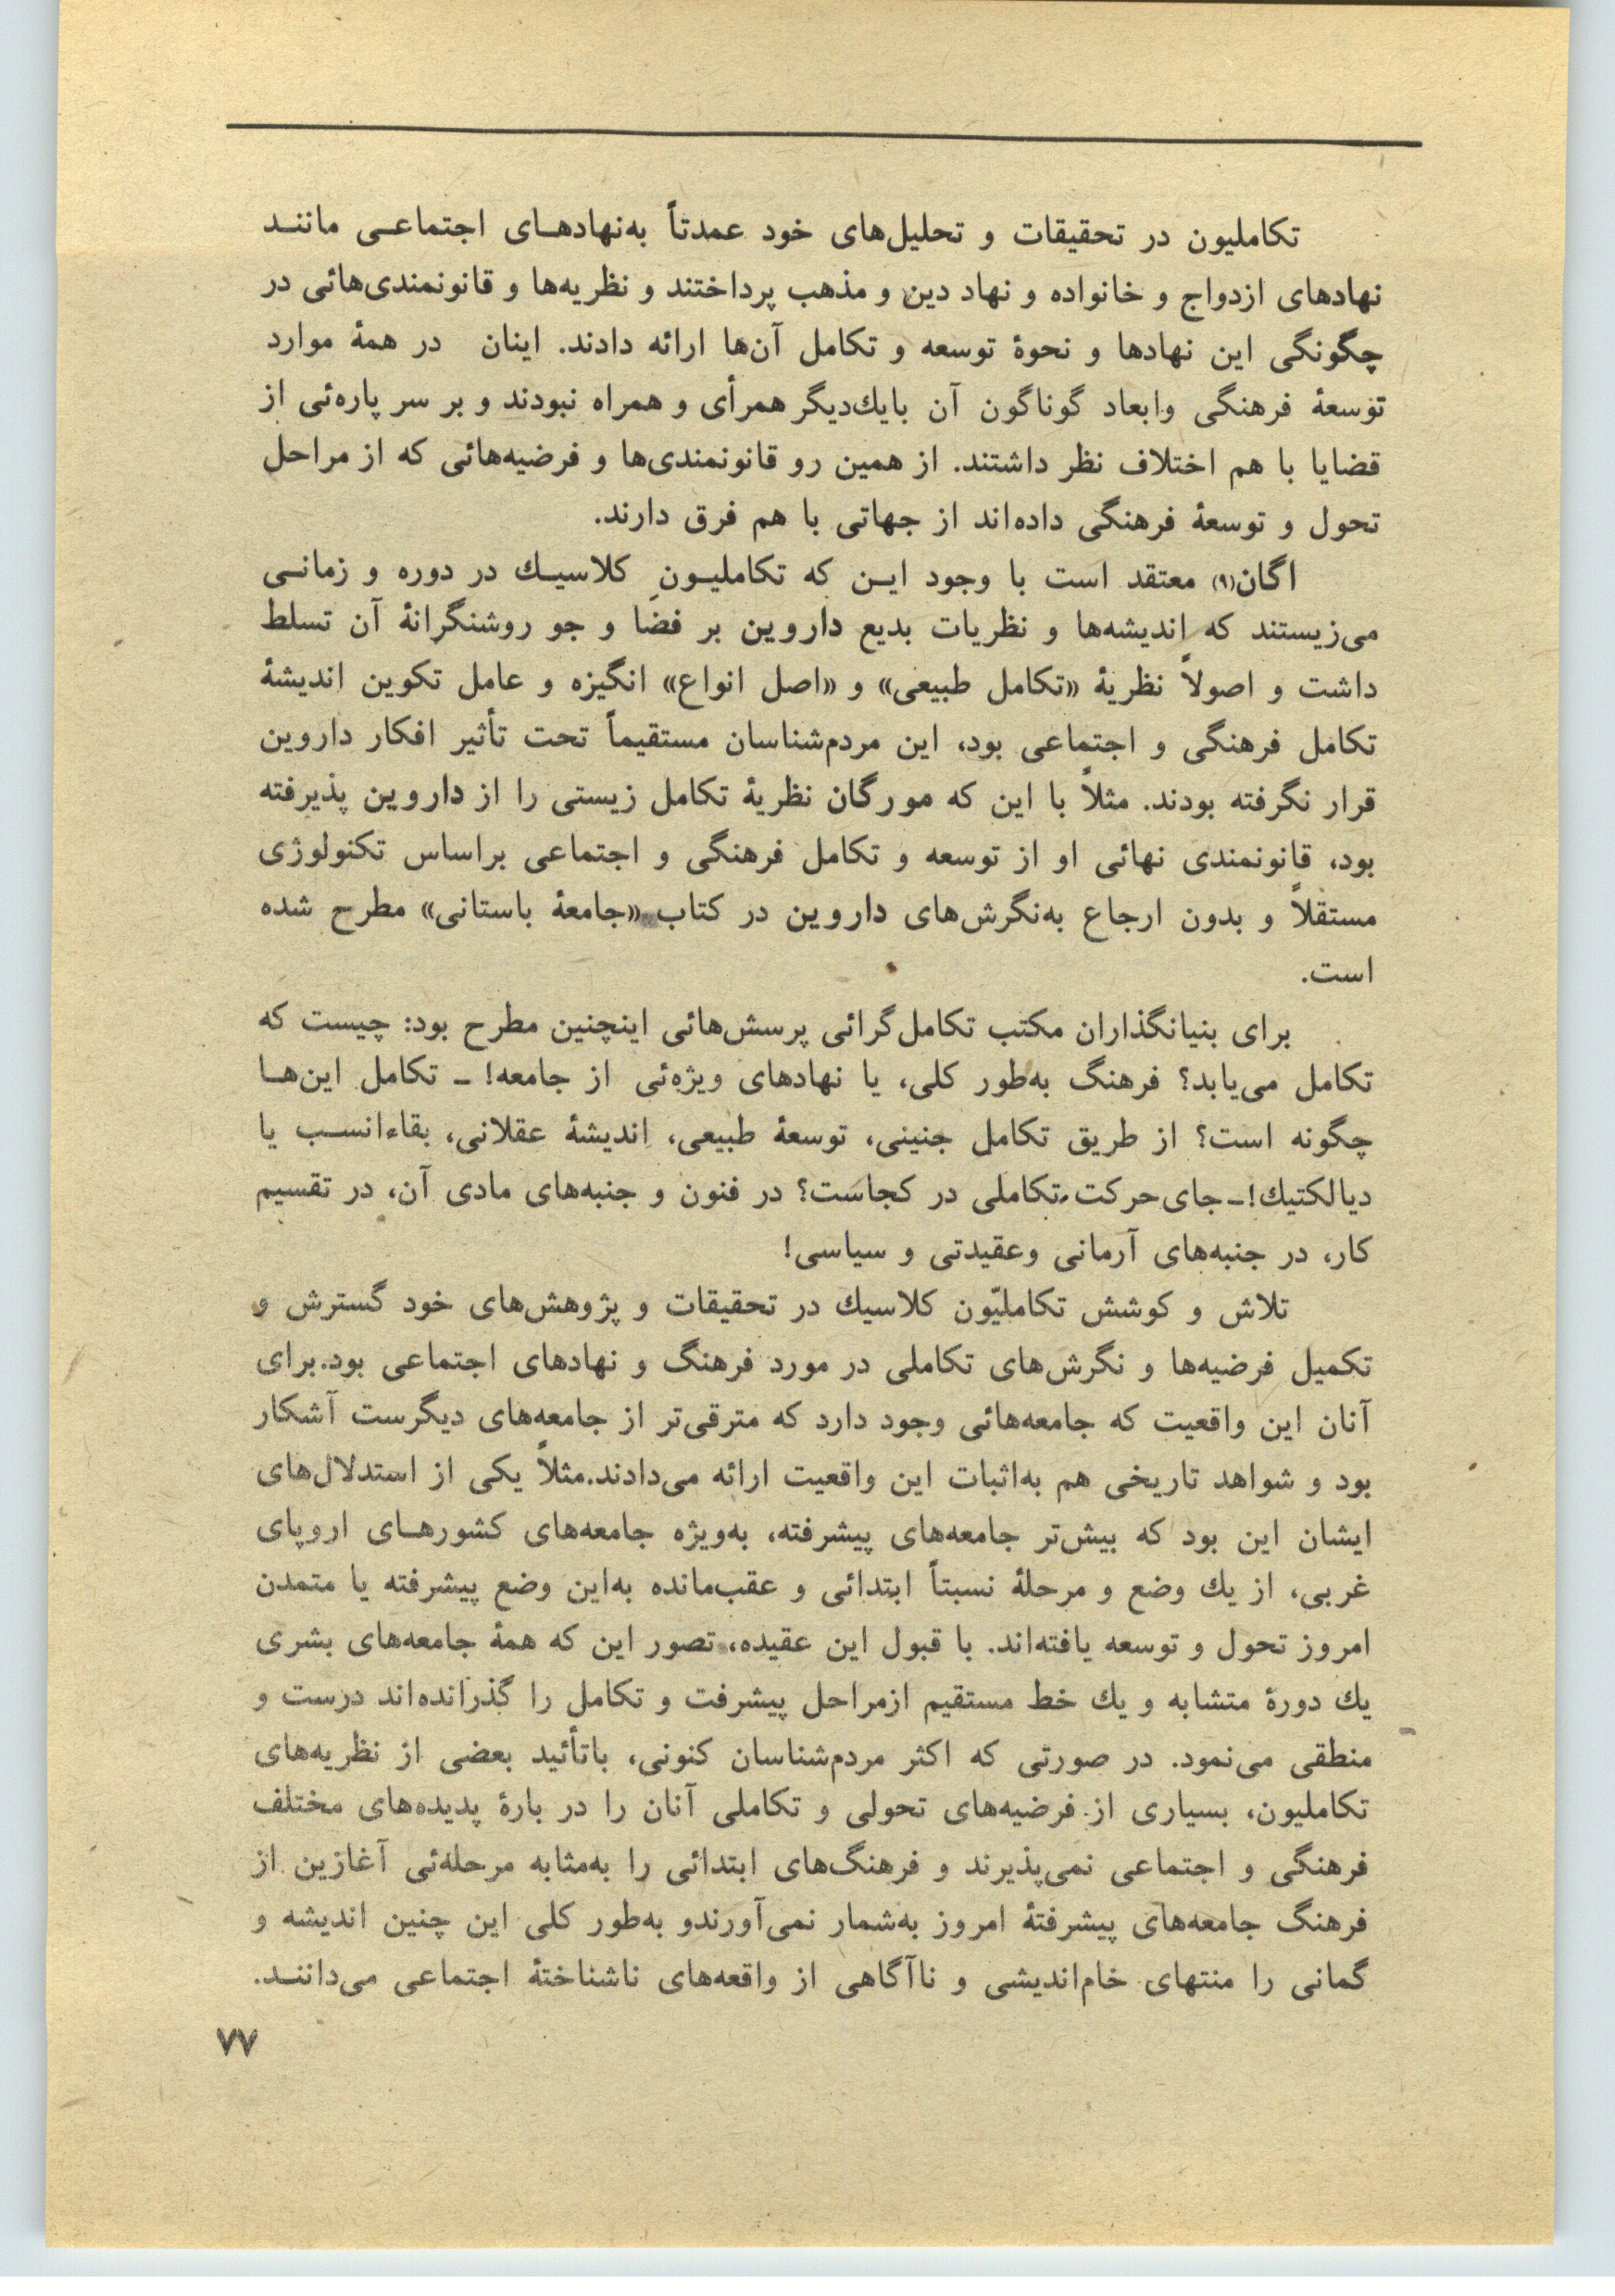 تکاملیون در تحقیقات و تحلیل‌های خود عمدتاً به‌نهادهـای اجتماعـی ماننـد
نهادهای ازدواج و خانواده و نهاد دین و مذهب پرداختند و نظریه‌ها و قانونمندی‌هائی در
چگونگی این نهادها و نحوهٔ توسعه و تکامل آن‌ها ارائه دادند. اینان در همهٔ موارد
توسعهٔ فرهنگی وابعاد گوناگون آن بایك‌دیگر همرأی و همراه نبودند و بر سر پاره‌ئی از
قضایا با هم اختلاف نظر داشتند. از همین رو قانونمندی‌ها و فرضیه‌هائی که از مراحل
تحول و توسعهٔ فرهنگی داده‌اند از جهاتی با هم فرق دارند.
اگان(۹) معتقد است با وجود ایـن که تکاملیـون کلاسیـك در دوره و زمانـی
می‌زیستند که اندیشه‌ها و نظریات بدیع داروین بر فضا و جو روشنگرانهٔ آن تسلط
داشت و اصولاً نظریهٔ «تکامل طبیعی» و «اصل انواع» انگیزه و عامل تکوین اندیشهٔ
تکامل فرهنگی و اجتماعی بود، این مردم‌شناسان مستقیماً تحت تأثیر افکار داروین
قرار نگرفته بودند. مثلاً با این که مورگان نظریهٔ تکامل زیستی را از داروین پذیرفته
بود، قانونمندی نهائی او از توسعه و تکامل فرهنگی و اجتماعی براساس تکنولوژی
مستقلاً و بدون ارجاع به‌نگرش‌های داروین در کتاب «جامعهٔ باستانی» مطرح شده
است.
برای بنیانگذاران مکتب تکامل‌گرائی پرسش‌هائی اینچنین مطرح بود: چیست که
تکامل می‌یابد؟ فرهنگ به‌طور کلی، یا نهادهای ویژه‌ئی از جامعه! ـ تکامل این‌هـا
چگونه است؟ از طریق تکامل جنینی، توسعهٔ طبیعی، اندیشهٔ عقلانی، بقاءانسـب یا
دیالکتیك!ـ جای حرکت تکاملی در کجاست؟ در فنون و جنبه‌های مادی آن، در تقسیم
کار، در جنبه‌های آرمانی وعقیدتی و سیاسی!
تلاش و کوشش تکاملیّون کلاسیك در تحقیقات و پژوهش‌های خود گسترش و
تکمیل فرضیه‌ها و نگرش‌های تکاملی در مورد فرهنگ و نهادهای اجتماعی بود.برای
آنان این واقعیت که جامعه‌هائی وجود دارد که مترقی‌تر از جامعه‌های دیگرست آشکار
بود و شواهد تاریخی هم به‌اثبات این واقعیت ارائه می‌دادند.مثلاً یکی از استدلال‌های
ایشان این بود که بیش‌تر جامعه‌های پیشرفته، به‌ویژه جامعه‌های کشورهـای اروپای
غربی، از یك وضع و مرحلهٔ نسبتاً ابتدائی و عقب‌مانده به‌این وضع پیشرفته یا متمدن
امروز تحول و توسعه یافته‌اند. با قبول این عقیده، تصور این که همهٔ جامعه‌های بشری
یك دورهٔ متشابه و یك خط مستقیم ازمراحل پیشرفت و تکامل را گذرانده‌اند درست و
منطقی می‌نمود. در صورتی که اکثر مردم‌شناسان کنونی، باتأئید بعضی از نظریه‌های
تکاملیون، بسیاری از فرضیه‌های تحولی و تکاملی آنان را در بارهٔ پدیده‌های مختلف
فرهنگی و اجتماعی نمی‌پذیرند و فرهنگ‌های ابتدائی را به‌مثابه مرحله‌ئی آغازین از
فرهنگ جامعه‌های پیشرفتهٔ امروز به‌شمار نمی‌آورندو به‌طور کلی این چنین اندیشه و
گمانی را منتهای خام‌اندیشی و ناآگاهی از واقعه‌های ناشناختهٔ اجتماعی می‌داننـد.
۷۷